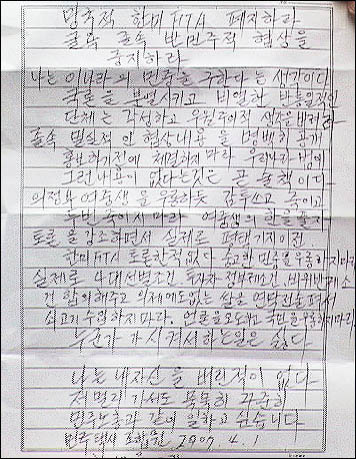 망국적 한미FTA 폐지하라
굴욕 졸속 반민주적 협상을
중지하라
나는 이나라의 민중을 구한다는 생각이다
국론을 분열시키고 비열한 반통일적인
단체는 각성하고 우월주의적 생각을 버려라
졸속 밀실적인 협상내용을 명백히 공개
홍보하기전에 체결하지마라 우리나라 법에
그런내용이 없다는것은 곧 술책이다
의정부 여중생을 우롱하듯 감투쓰고 죽이고
두번 죽이지마라 여중생의 한을 풀자
토론을 강조하면서 실제로 평택기지이전
한미FTA 토론한적없다 숭고한 민중을 우롱하지마라
실제로 4대선결조건 투자자 정부제소건 비위반제소
건 합의해주고 의제에도없는 쌀을 연막전술펴서
쇠고기 수입하지마라. 언론을오도하고 국민을우롱하지마라
누군가 가 시켜서하는일은 싫다
나는 내자신을 버린적이 없다
저멀리 가서도 묵묵히 꾸준히
민주노총과 같이 일하고 싶습니다
민주택시 조합원 2007. 4. 1